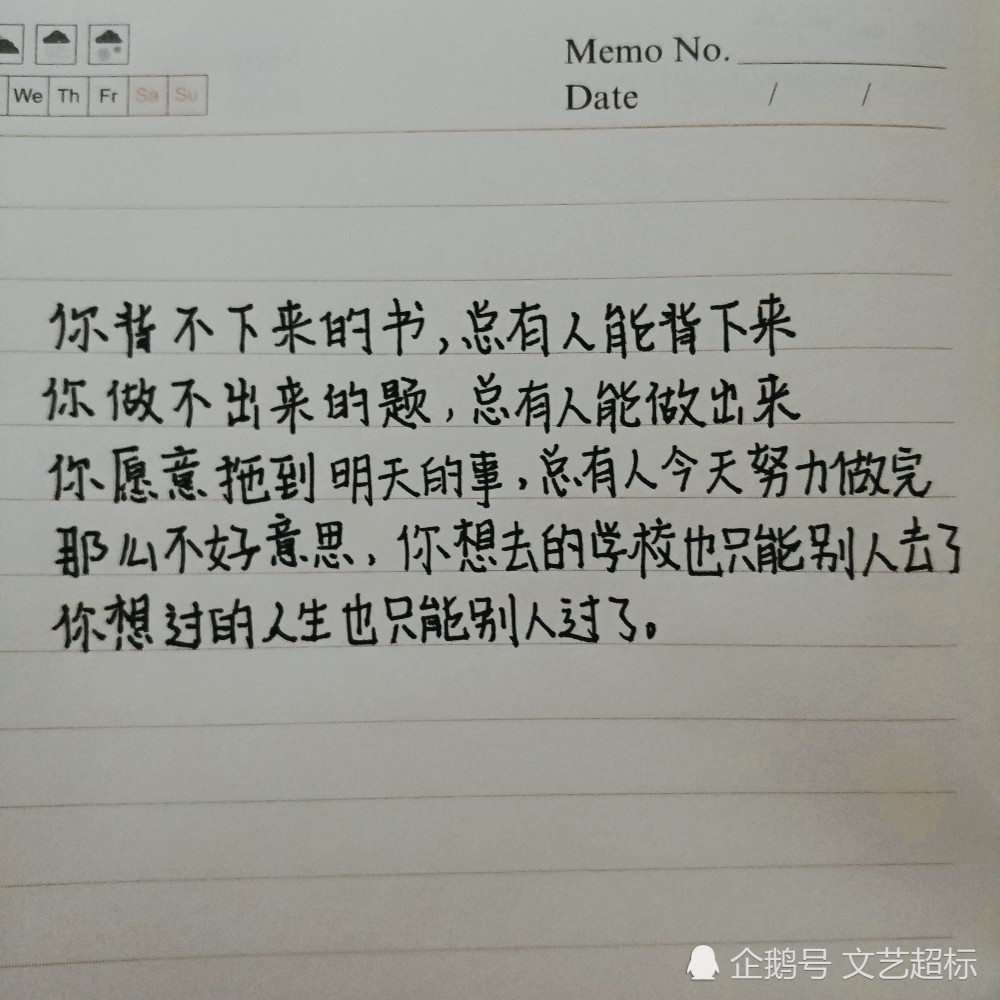 Memo No.
We Th Fr Sa Su
Date / /
你背不下来的书,总有人能背下来
你做不出来的题,总有人能做出来
你愿意拖到明天的事,总有人今天努力做完
那么不好意思,你想去的学校也只能别人去了
你想过的人生也只能别人过了。
企鹅号 文艺超标